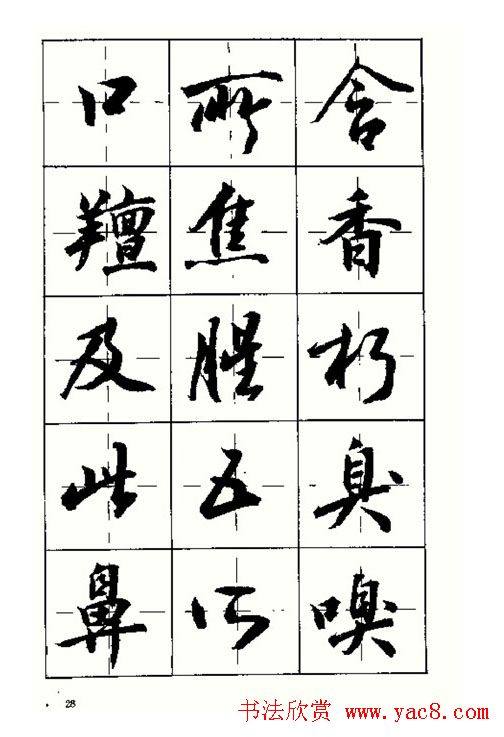 口所含
羶焦香
及腥朽
此五臭
鼻所嗅
28
书法欣赏 www.yac8.com